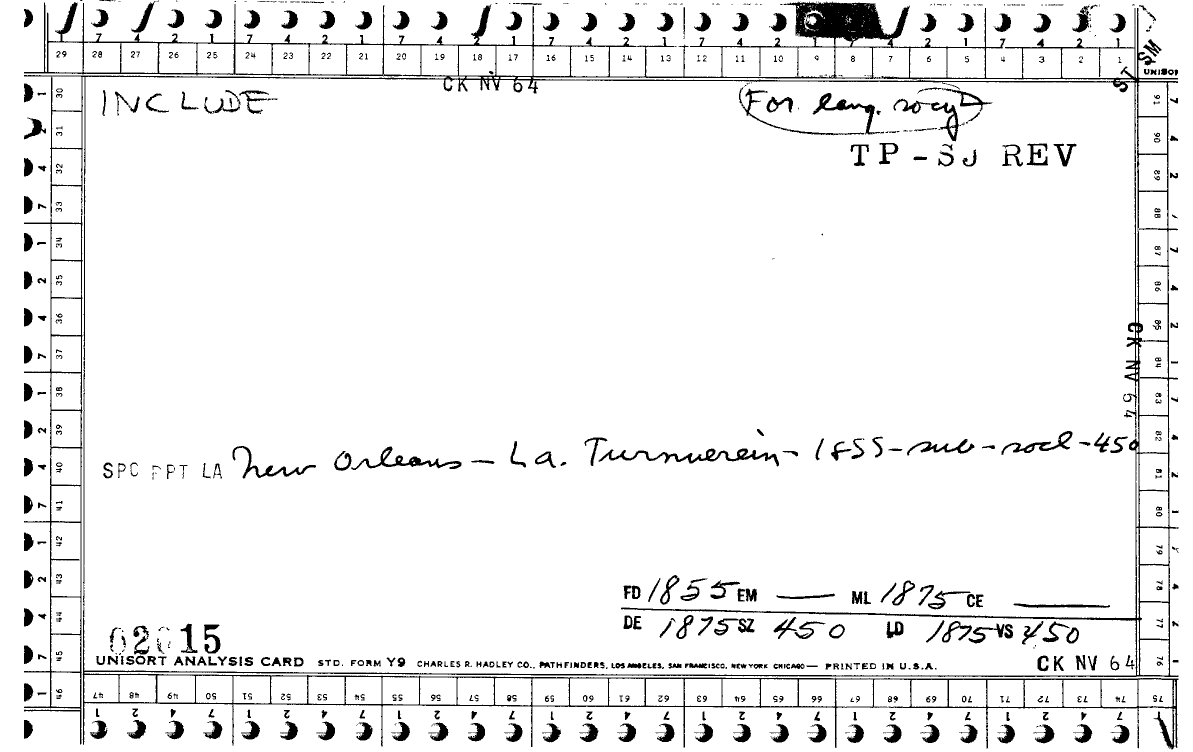 1 7 4 2 1 7 4 2 1 7 4 2 1 7 4 2 1 7 4 2 1 7 4 2 1 7 4 2 1
29 28 27 26 25 24 23 22 21 20 19 18 17 16 15 14 13 12 11 10 9 8 7 6 5 4 3 2 1
UNISORT
ST SM
CK NV 64
INCLUDE
For lang. socy
TP - SJ REV
30 31 32 33 34 35 36 37 38 39 40 41 42 43 44 45 46
91 90 89 88 87 86 85 84 83 82 81 80 79 78 77 76
CK NV 64
SPC PPT LA New Orleans - La. Turnverein - 1855 - sub - socl - 450
FD 1855 EM — ML 1875 CE —
DE 1875 SZ 450 LD 1875 VS 450
02615
UNISORT ANALYSIS CARD STD. FORM Y9 CHARLES R. HADLEY CO., PATHFINDERS, LOS ANGELES, SAN FRANCISCO, NEW YORK CHICAGO — PRINTED IN U.S.A.
CK NV 64
47 48 49 50 51 52 53 54 55 56 57 58 59 60 61 62 63 64 65 66 67 68 69 70 71 72 73 74 75
1 2 4 7 1 2 4 7 1 2 4 7 1 2 4 7 1 2 4 7 1 2 4 7 1 2 4 7 1